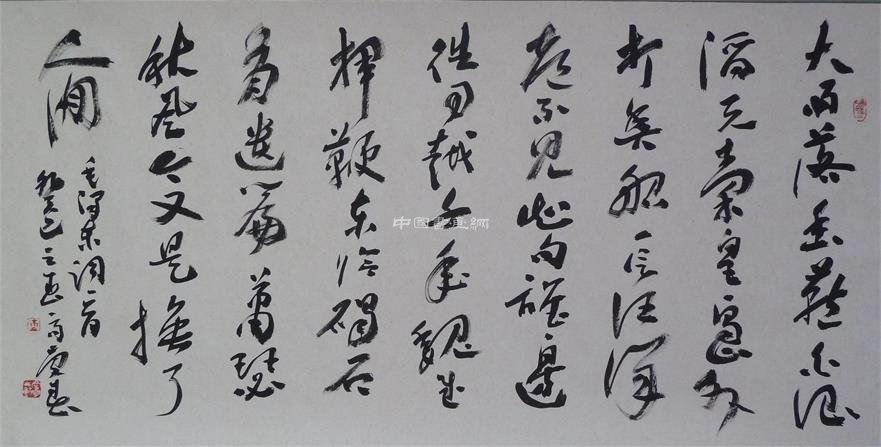 大雨落幽燕白浪
滔天秦皇岛外
打鱼船一片汪洋
都不见知向谁边
往事越千年魏武
挥鞭东临碣石
有遗篇萧瑟
秋风今又是换了
人间
毛泽东词一首
癸巳之春
中國書畫網